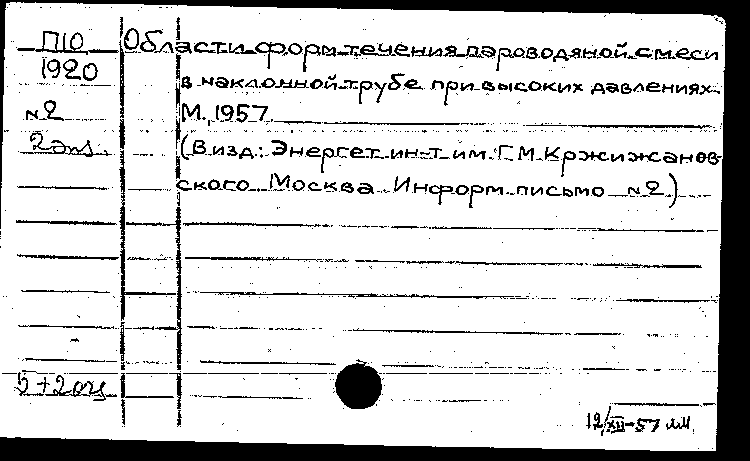 П10 Области форм течения пароводяной смеси
1920 в наклонной трубе при высоких давлениях.
№2 М, 1957
2экз. (В изд: Энергет. ин-т им. Г.М. Кржижанов-
ского. Москва. Информ. письмо №2)
5+2
12/XII-57